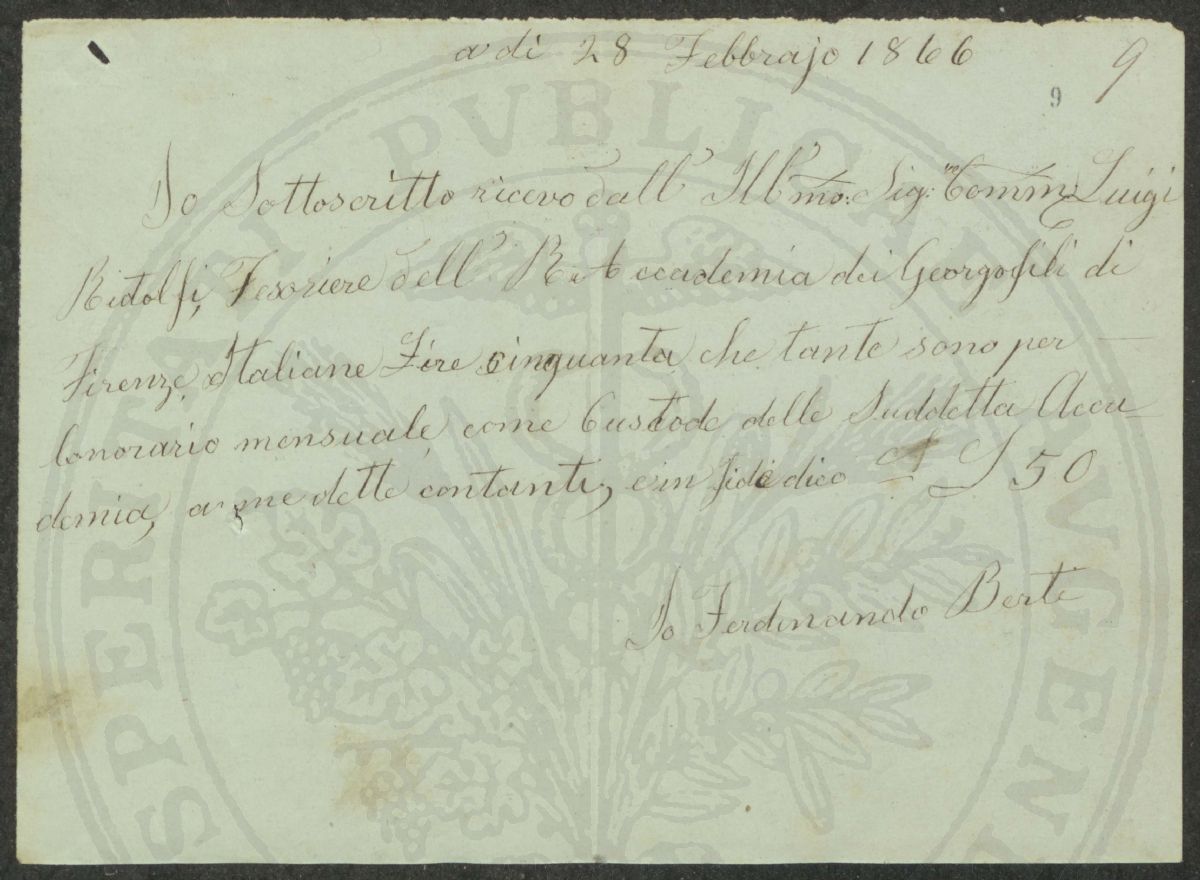 a dì 28 Febbrajo 1866
9
9
Io Sottoscritto ricevo dall' Ill.mo: Sig: Comm: Luigi
Ridolfi, Tesoriere dell' R. Accademia dei Georgofili di
Firenze, Italiane Lire cinquanta che tante sono per
lonorario mensuale, come Custode delle Suddetta Acca
demia, a me dette contanti, e in fede dico £ 50
Io Ferdinando Berti
PROSPERITATI PVBLICAE AVGENDAE